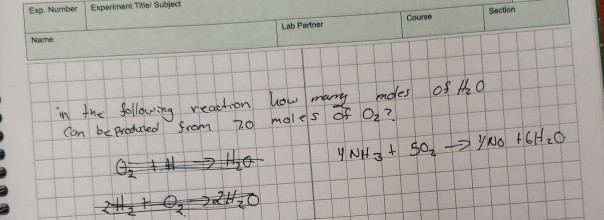 Exp. Number Experiment Title/ Subject
Name Lab Partner Course Section
in the following reaction how many moles of H₂O
Can be produced from 7.0 moles of O₂?
O₂ + H → H₂O
4 NH₃ + 5O₂ → 4NO + 6H₂O
2H₂ + O₂ → 2H₂O